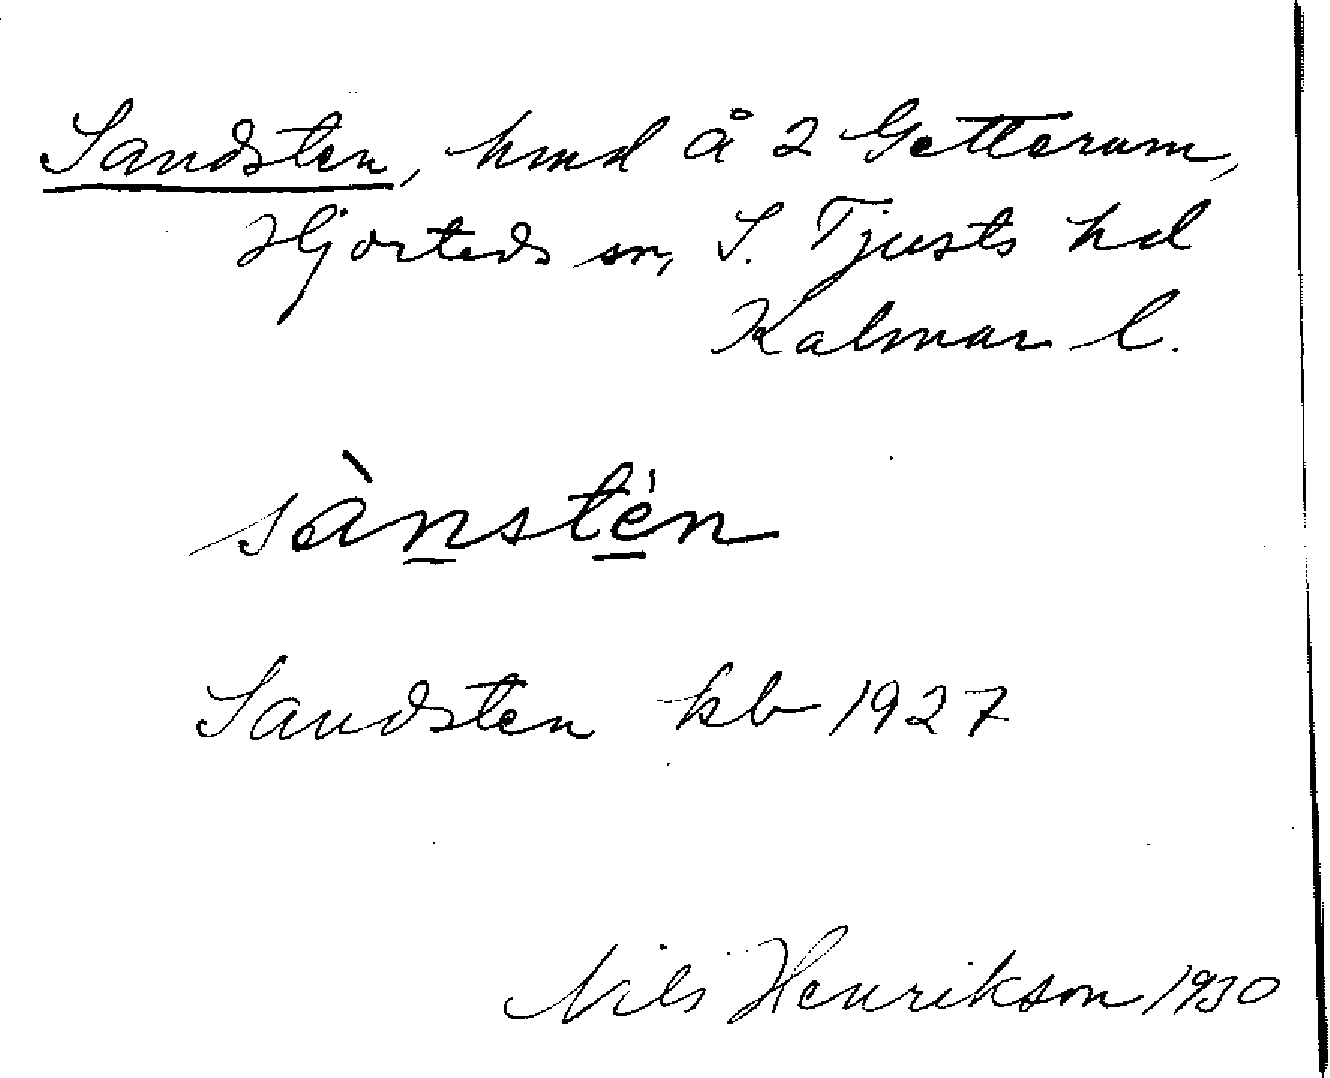 Sandsten, hmd å 2 Getteram,
Hjorteds sn, S. Tjusts hd
Kalmar l.
sànsté̀n
Sandsten kb 1927
Nils Henrikson 1930